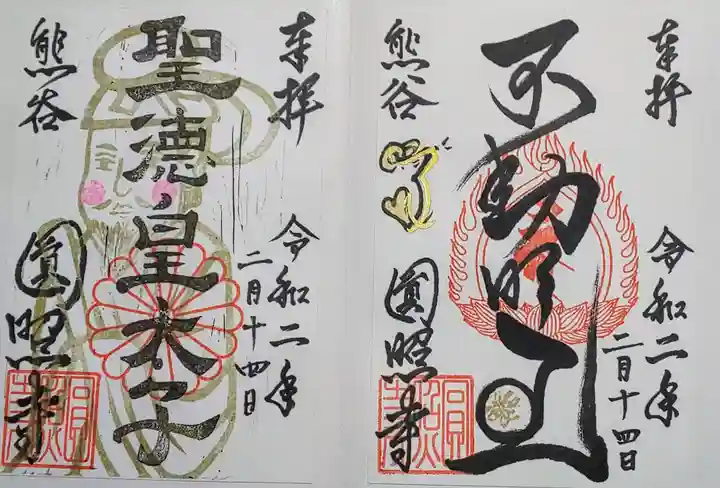 奉拝
令和二年
二月十四日
聖徳皇太子
熊谷
圓照寺
奉拝
令和二年
二月十四日
不動明王
熊谷
圓照寺